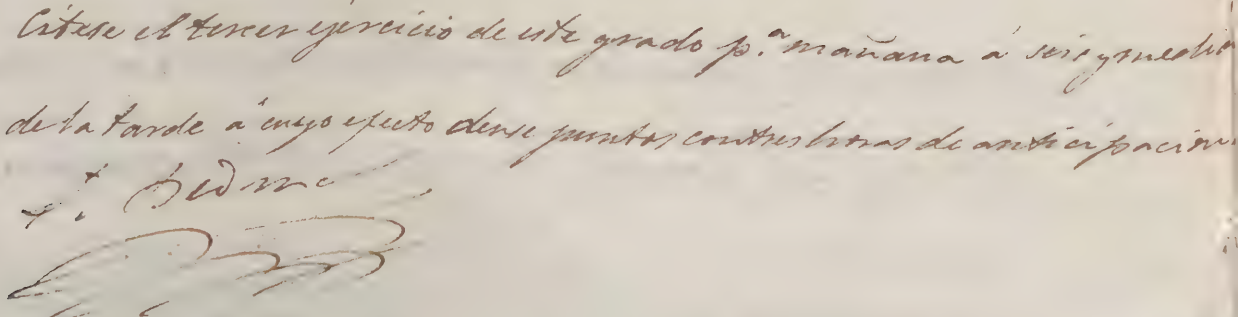 Citese el tercer ejercicio de este grado p.ª mañana á seis y media
de la tarde á cuyo efecto dense puntos con tres horas de anticipacion.